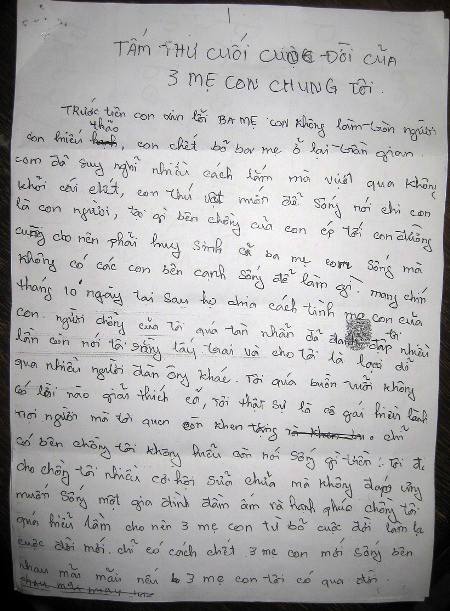 1
TẤM THƯ CUỐI CUỘC ĐỜI CỦA
3 MẸ CON CHUNG TÔI.
TRước tiên con xin lỗi BA MẸ con không làm tròn người
con hiếu thảo, con chết bỏ ba mẹ ở lại trần gian.
con đã suy nghĩ nhiều cách lắm mà vượt qua không
khỏi cái chết, con thú vật muốn để sống nói chi con
là con người, tại gì bên chồng của con ép tới con đường
cùng cho nên phải huy sinh cả ba mẹ con sống mà
không có các con bên cạnh sống để làm gì. mang chín
thang 10 ngày tai sau họ chia cách tình mẹ con của
con. người chồng của tôi quá tàn nhẫn đã đánh đập nhiều
lần còn nói tôi sống lấy trai và cho tôi là loại đỉ
qua nhiều người đàn ông khác. Tôi quá buồn vười không
có lời nào giải thích cả, tôi thật sự là cô gái hiền lành
mọi người mà tôi quen còn khen tặng. chỉ
có bên chồng tôi không hiểu còn nói sống gì tiền. Tôi đã
cho chồng tôi nhiều cơ hội sửa chữa mà không đạp ứng
muốn sống một gia đình đầm ấm và hạnh phúc chồng tôi
quá hiểu lầm cho nên 3 mẹ con từ bỏ cuộc đời làm lại
cuộc đời mới. chỉ có cách chết 3 mẹ con mới sống bên
nhau mãi mãi nếu 3 mẹ con tôi có qua đời.